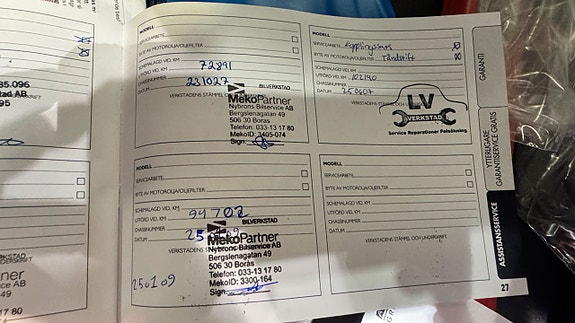 MODELL
SERVICEARBETE
BYTE AV MOTOROLJA/OLJEFILTER
SCHEMALAGD VID, KM
UTFÖRD VID, KM 72891
CHASSINUMMER
DATUM 231027
BILVERKSTAD
VERKSTADENS STÄMPEL OCH
MekoPartner
Nybrons Bilservice AB
Bergslenagatan 49
506 30 Borås
Telefon: 033-13 17 80
MekoID: 3405-074
Sign.
MODELL
SERVICEARBETE
BYTE AV MOTOROLJA/OLJEFILTER
SCHEMALAGD VID, KM
UTFÖRD VID, KM 94702
CHASSINUMMER
DATUM
BILVERKSTAD
VERKSTADENS
MekoPartner
Nybrons Bilservice AB
Bergslenagatan 49
506 30 Borås
Telefon: 033-13 17 80
MekoID: 3300-164
Sign.
250109
MODELL
SERVICEARBETE
BYTE AV MOTOROLJA/OLJEFILTER Tändstift
SCHEMALAGD VID, KM
UTFÖRD VID, KM 102190
CHASSINUMMER
DATUM 250607
VERKSTADENS STÄMPEL OCH
LV
VERKSTAD
Service Reparationer Felsökning
MODELL
SERVICEARBETE
BYTE AV MOTOROLJA/OLJEFILTER
SCHEMALAGD VID, KM
UTFÖRD VID, KM
CHASSINUMMER
DATUM
VERKSTADENS STÄMPEL OCH UNDERSKRIFT
GARANTI
YTTERLIGARE
GARANTISERVICE GRATIS
ASSISTANSSERVICE
27